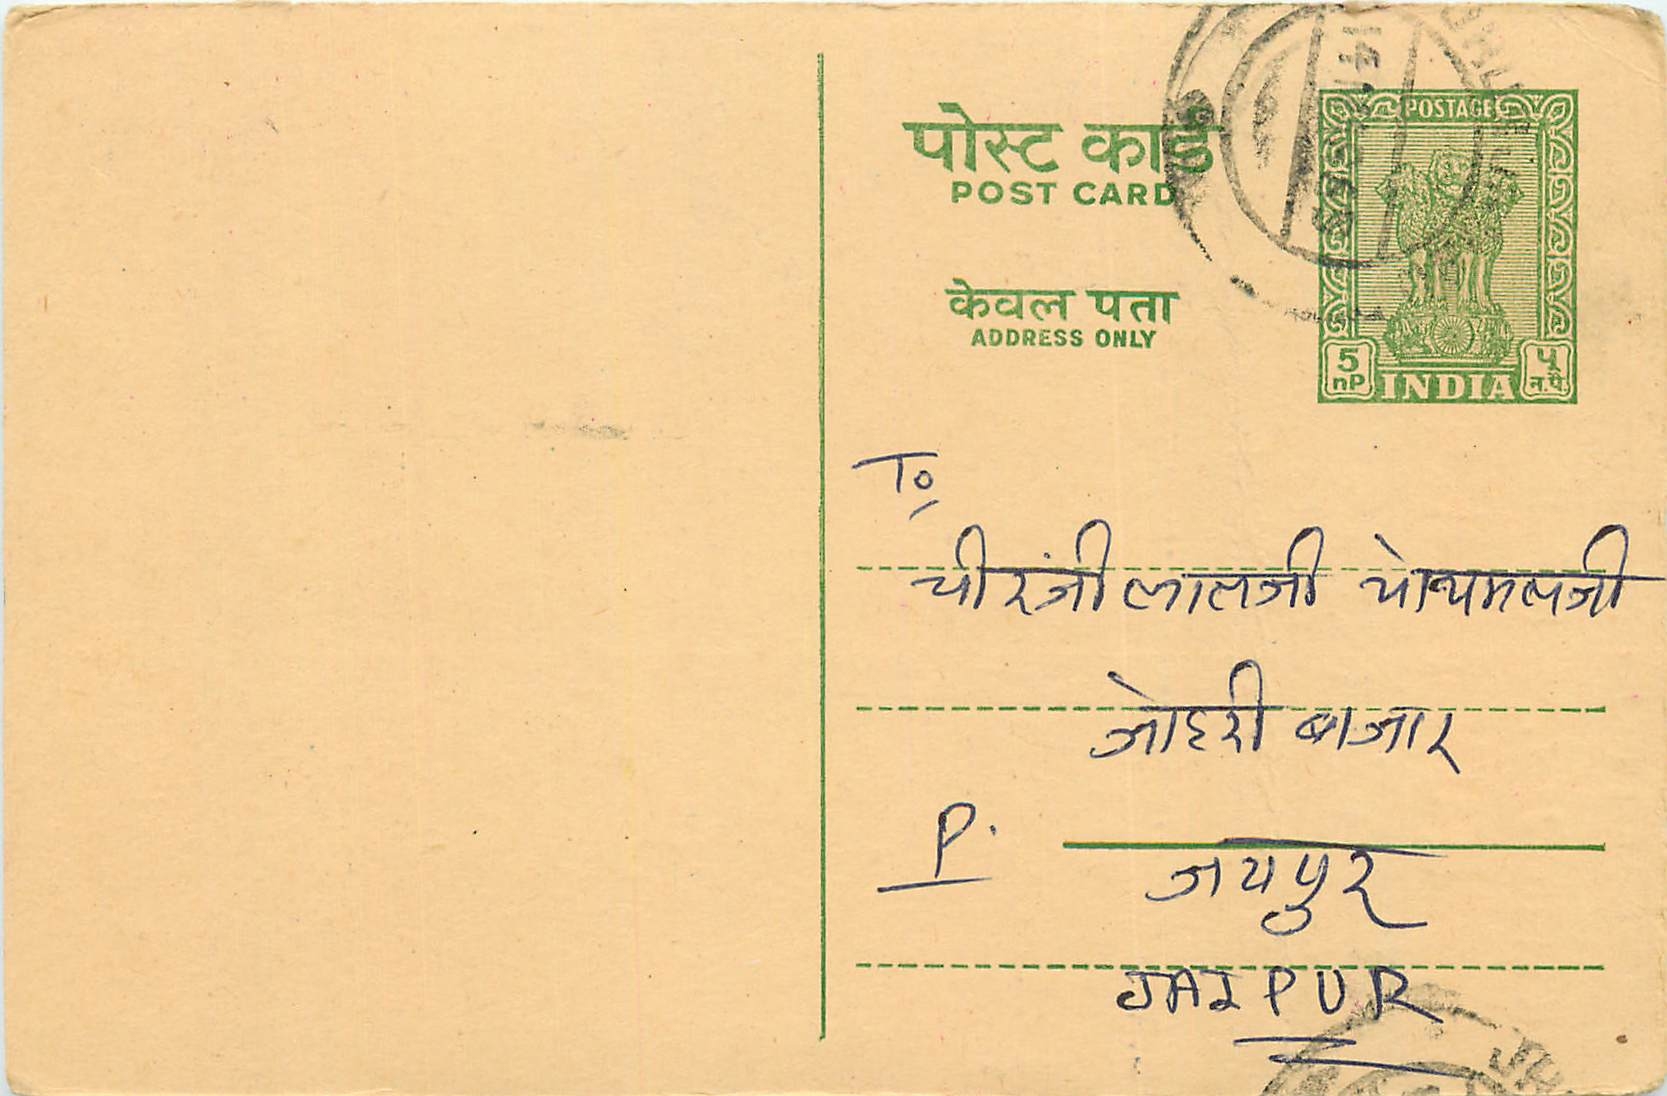 पोस्ट कार्ड
POST CARD
केवल पता
ADDRESS ONLY
POSTAGE
5 nP
INDIA
५ न.पै.
To,
चीरंजीलालजी चोथमलजी
जोहरी बाजार
P.
जयपुर
JAIPUR